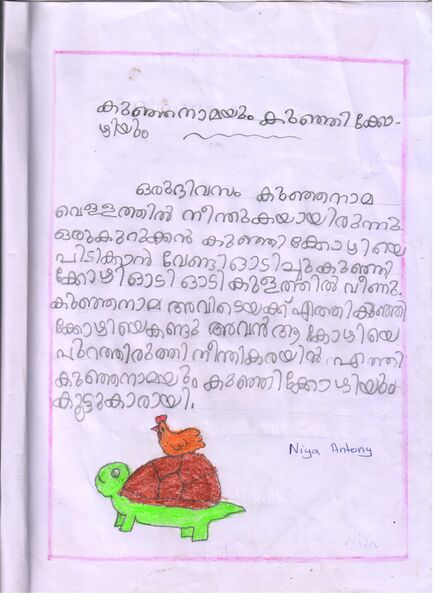 കുഞ്ഞനാമയും കുഞ്ഞിക്കോ-
ഴിയും
ഒരുദിവസം കുഞ്ഞനാമ
വെള്ളത്തിൽ നീന്തുകയായിരുന്നു.
ഒരുകുറുക്കൻ കുഞ്ഞിക്കോഴിയെ
പിടിക്കാൻ വേണ്ടി ഓടിച്ചു കുഞ്ഞി
ക്കോഴി ഓടി ഓടി കുളത്തിൽ വീണു.
കുഞ്ഞനാമ അവിടെയക്ക് എത്തി കുഞ്ഞി
ക്കോഴിയെ കണ്ടു അവൻ ആ കോഴിയെ
പുറത്തിരുത്തി നീന്തി കരയിൻ എത്തി
കുഞ്ഞനാമയും കുഞ്ഞിക്കോഴിയും
കൂട്ടുകാരായി.
Niya Antony